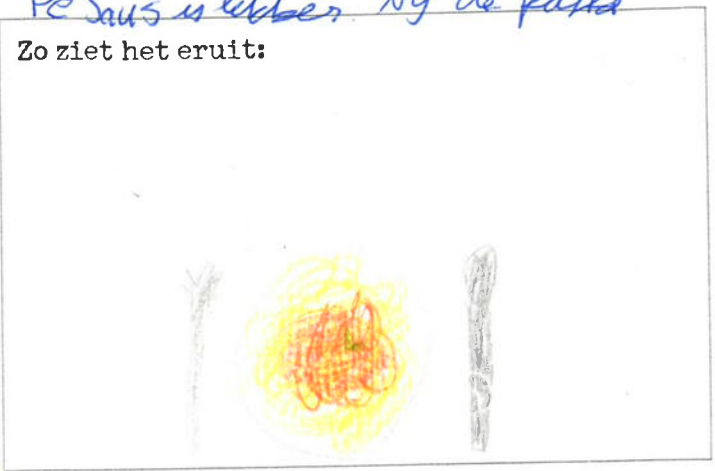 De saus is lekker bij de pasta
Zo ziet het eruit: